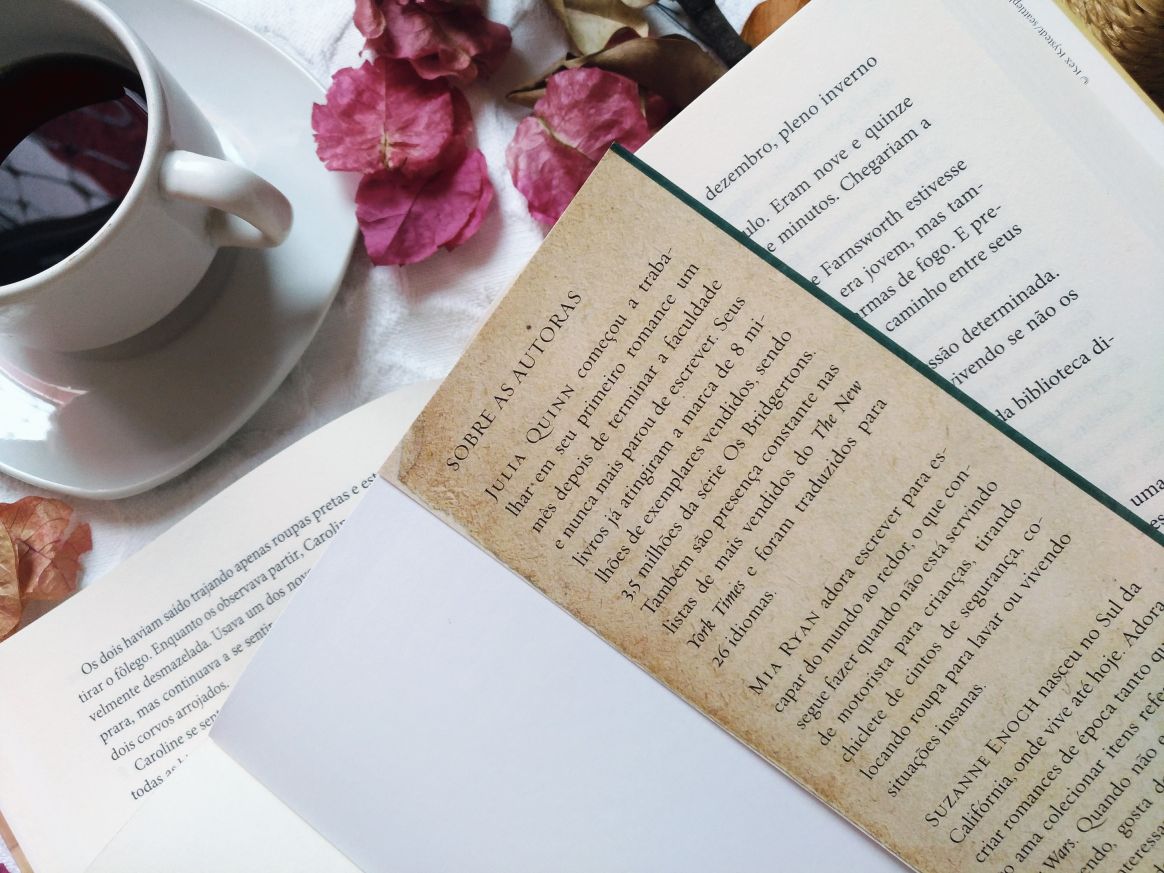 © Rex Rystedt/seattlep
dezembro, pleno inverno
ulo. Eram nove e quinze
e minutos. Chegariam a
e Farnsworth estivesse
era jovem, mas tam-
rmas de fogo. E pre-
caminho entre seus
ssão determinada.
vivendo se não os
da biblioteca di-
uma
SOBRE AS AUTORAS
JULIA QUINN começou a traba-
lhar em seu primeiro romance um
mês depois de terminar a faculdade
e nunca mais parou de escrever. Seus
livros já atingiram a marca de 8 mi-
lhões de exemplares vendidos, sendo
3,5 milhões da série Os Bridgertons.
Também são presença constante nas
listas de mais vendidos do The New
York Times e foram traduzidos para
26 idiomas.
MIA RYAN adora escrever para es-
capar do mundo ao redor, o que con-
segue fazer quando não está servindo
de motorista para crianças, tirando
chiclete de cintos de segurança, co-
locando roupa para lavar ou vivendo
situações insanas.
SUZANNE ENOCH nasceu no Sul da
Califórnia, onde vive até hoje. Adora
criar romances de época tanto qu
o ama colecionar itens refe
Wars. Quando não
endo, gosta d
nteressa
Os dois haviam saído trajando apenas roupas pretas e es
tirar o fôlego. Enquanto os observava partir, Carolin
velmente desmazelada. Usava um dos nov
prara, mas continuava a se sentir
dois corvos arrojados.
Caroline se sent
todas as